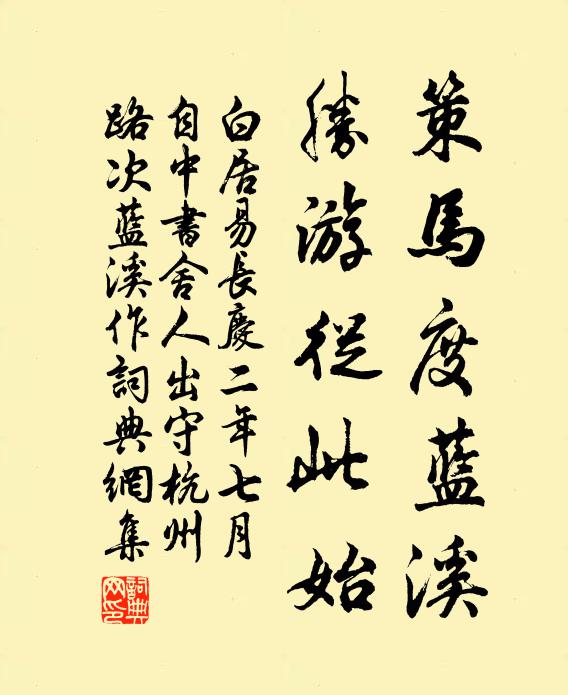 策馬度藍溪
勝游從此始
白居易長慶二年七月
自中書舍人出守杭州
路次藍溪作詞典網集
詞典网印